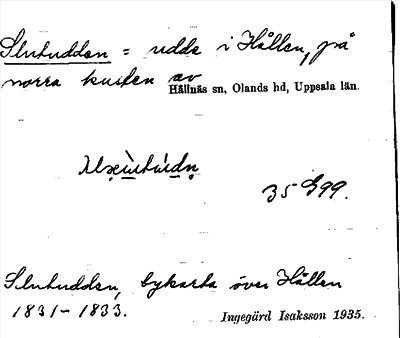 Slutudden = udde i Hållen, på
norra kusten av
Hållnäs sn, Olands hd, Uppsala län.
35 G99.
Slutudden, bykarta över Hållen
1831-1833.
Ingegärd Isaksson 1935.